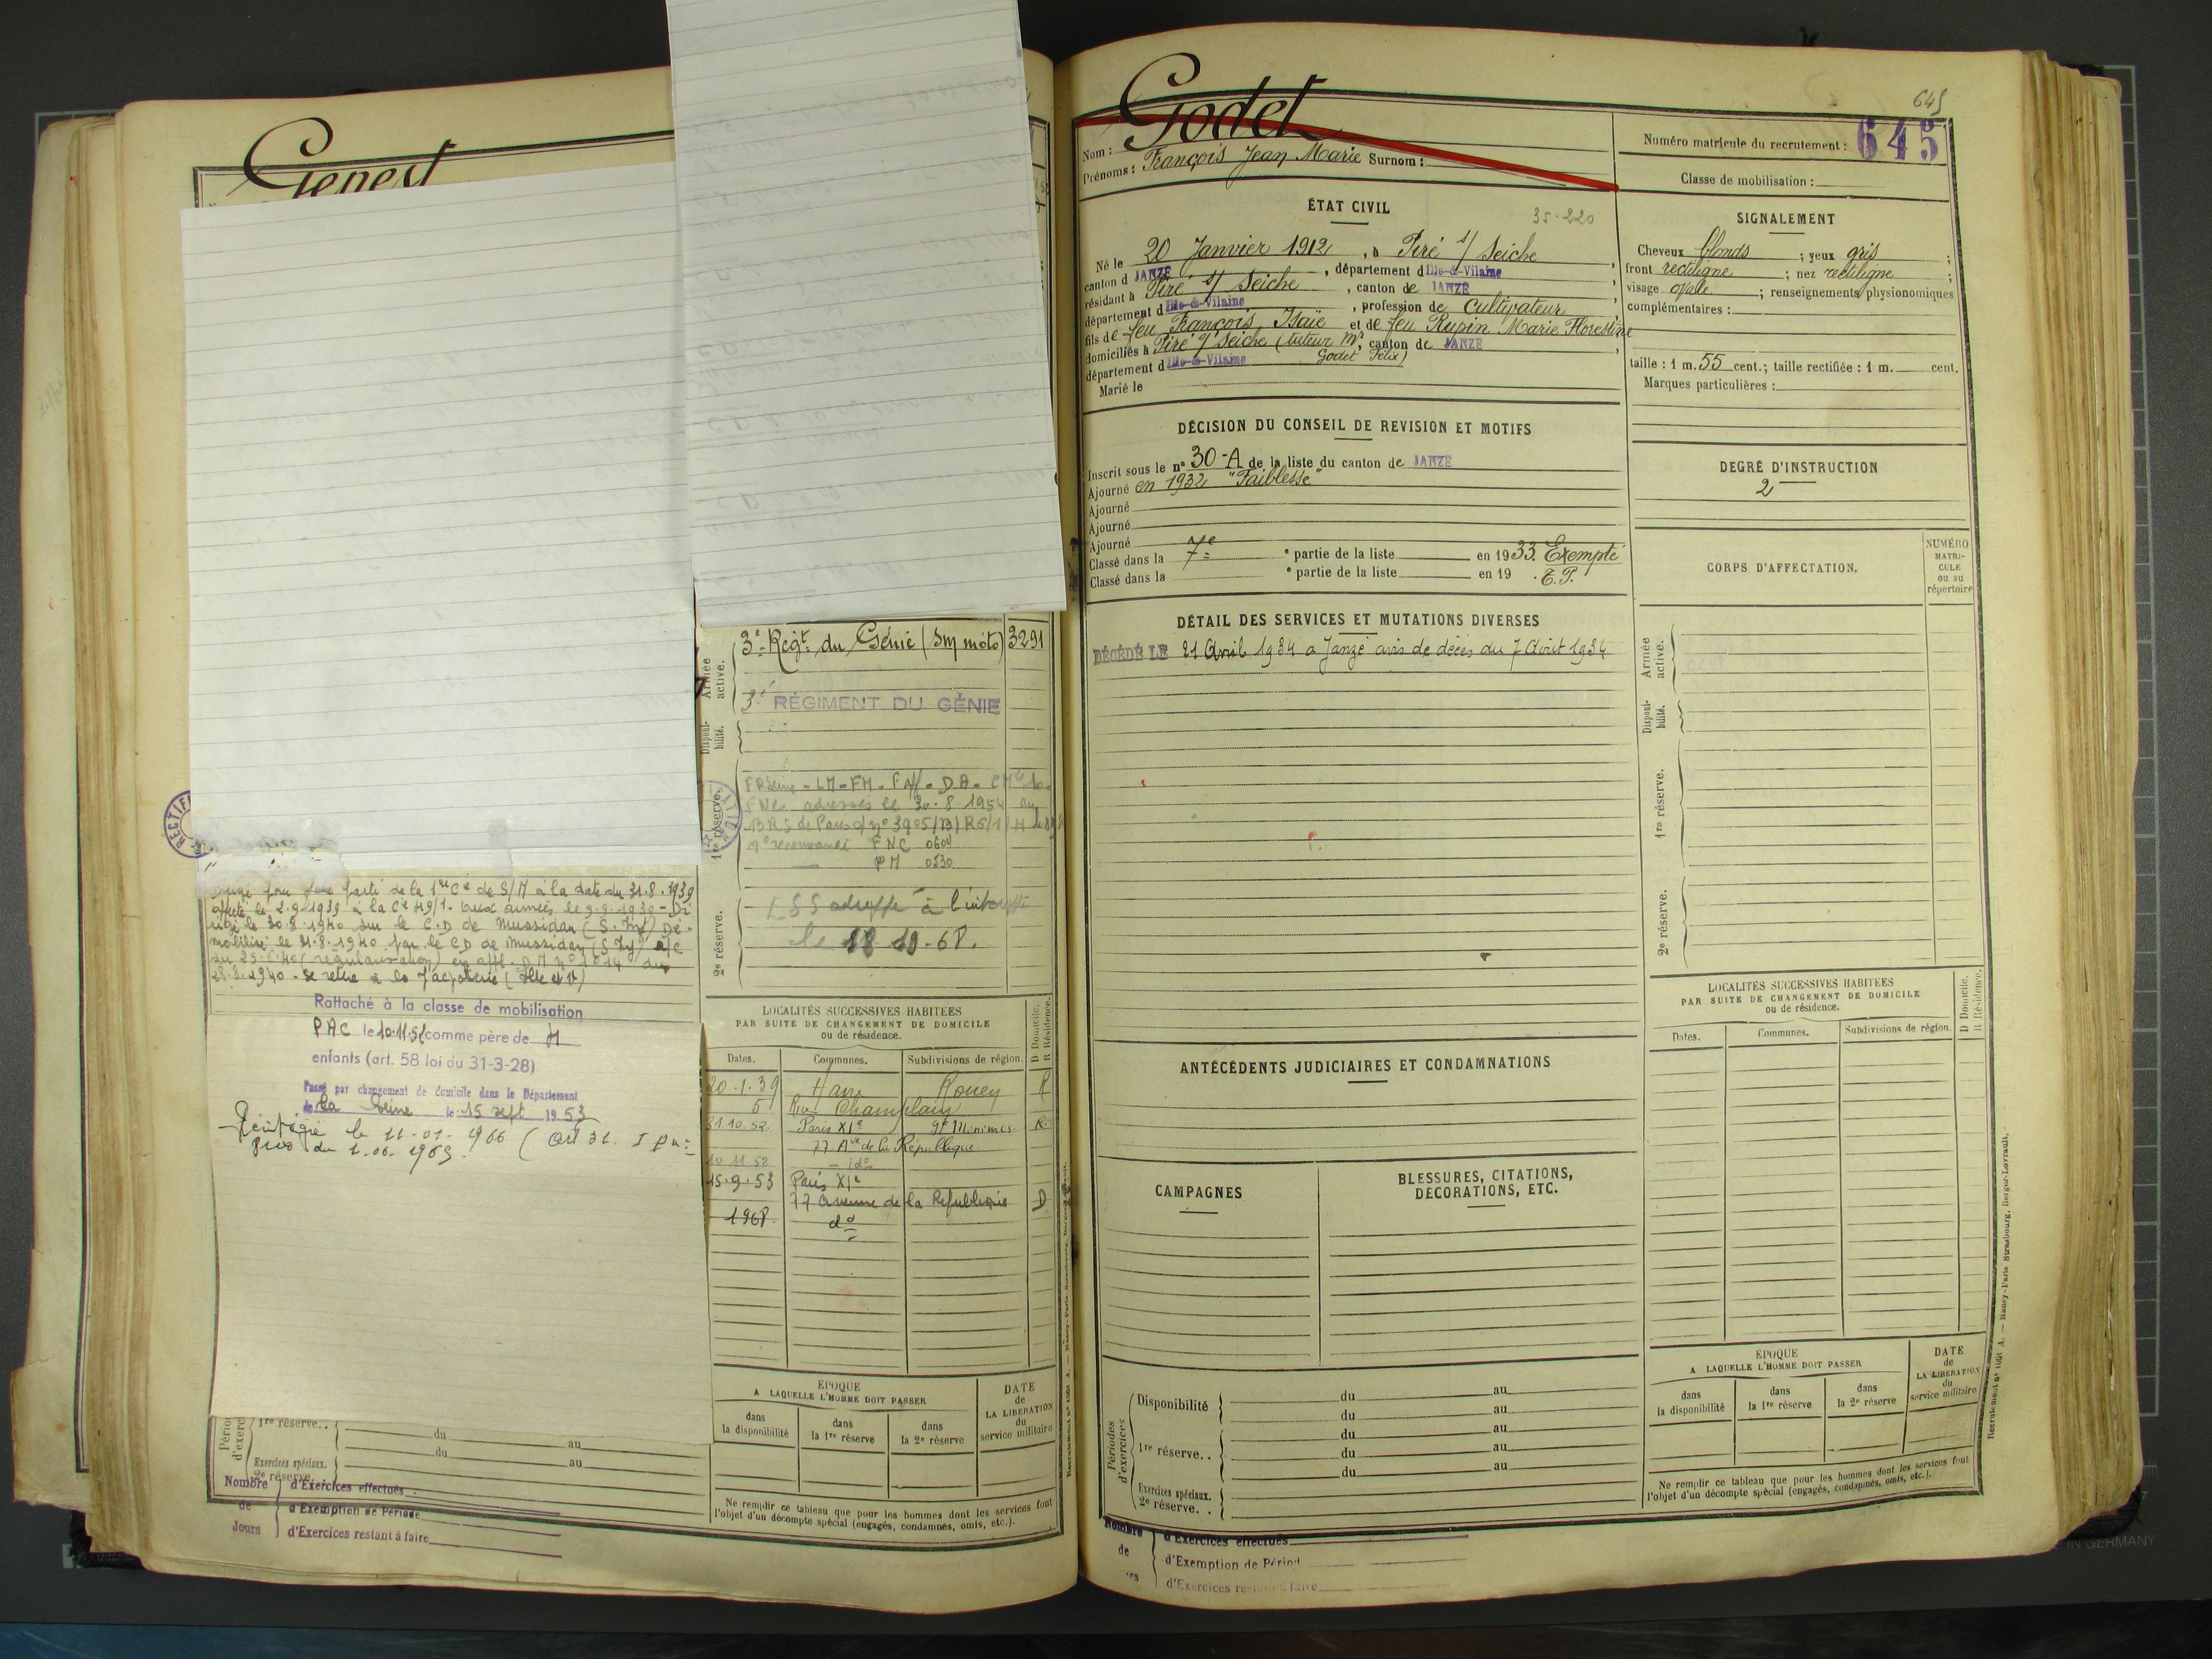 Genest
3e Regt du Génie (Sm moto) 3291
Armée active.
3e RÉGIMENT DU GÉNIE
Disponibilité.
1re réserve.
FNC adressés le 30.8.1954 au
n° recommandé FNC 0600
PM 0530
2e réserve.
le 18 10-68.
RECTIFI
partie de la 1re Cie de S/M à la date du 31.8.1939
affecté le 2.9.1939 à la Cie 49/1. aux armées le 9.9.1939 - Di
rigé le 30.8.1940 sur le C.D de Mussidan (S. Inf) Dé-
mobilisé le 31.8.1940 par le CD de Mussidan
28.8.1940 - se retire à la
Rattaché à la classe de mobilisation
PAC le 10.11.52 comme père de 4
enfants (art. 58 loi du 31-3-28)
Passé par changement de domicile dans le Département
de La Seine le 15 sept 1953
le 11-01-1966 (art 31.
du 1.06.1965.
LOCALITÉS SUCCESSIVES HABITÉES
PAR SUITE DE CHANGEMENT DE DOMICILE
ou de résidence.
D Domicile.
R Résidence.
Dates. Communes. Subdivisions de région.
20-1-39 Havre Rouen R
5 Rue Champlain
31.10.52. Paris XIe gt Minimes R.
77 Ave de la République
10.11.52 - ido
15.9.53 Paris XIe
77 avenue de la République D
1968 do
1re réserve..
du au
du au
Exercices spéciaux.
2e réserve.
Nombre de Jours
d'Exercices effectués
d'Exemption de Période
d'Exercices restant à faire
ÉPOQUE
A LAQUELLE L'HOMME DOIT PASSER
DATE de LA LIBÉRATION du service militaire
dans la disponibilité
dans la 1re réserve
dans la 2e réserve
Ne remplir ce tableau que pour les hommes dont les services font
l'objet d'un décompte spécial (engagés, condamnés, omis, etc.).
645
Nom : Godet
Prénoms : François Jean Marie Surnom :
Numéro matricule du recrutement : 645
Classe de mobilisation :
ÉTAT CIVIL
35-220
Né le 20 Janvier 1912, à Piré s/ Seiche,
canton d JANZÉ, département d Ille-&-Vilaine
résidant à Piré s/ Seiche, canton de JANZÉ,
département d Ille-&-Vilaine, profession de Cultivateur,
fils de feu François, Isaïe et de feu Rupin Marie Florestine
domiciliés à Piré s/ Seiche (tuteur Mr, canton de JANZÉ,
département d Ille-&-Vilaine Godet Félix)
Marié le
SIGNALEMENT
Cheveux blonds ; yeux gris ;
front rectiligne ; nez rectiligne ;
visage ovale ; renseignements physionomiques
complémentaires :
taille : 1 m. 55 cent.; taille rectifiée : 1 m. cent.
Marques particulières :
DÉCISION DU CONSEIL DE REVISION ET MOTIFS
Inscrit sous le n° 30-A de la liste du canton de JANZÉ
Ajourné en 1932 "Faiblesse"
Ajourné
Ajourné
Ajourné
Classé dans la 7e e partie de la liste en 1933. Exempté
Classé dans la e partie de la liste en 19 . T.P.
DEGRÉ D'INSTRUCTION
2
CORPS D'AFFECTATION.
NUMÉRO MATRICULE ou au répertoire
DÉTAIL DES SERVICES ET MUTATIONS DIVERSES
DÉCÉDÉ LE 21 Avril 1934 a Janzé avis de décès du 7 Août 1934
Armée active.
Disponibilité.
1re réserve.
2e réserve.
ANTÉCÉDENTS JUDICIAIRES ET CONDAMNATIONS
LOCALITÉS SUCCESSIVES HABITÉES
PAR SUITE DE CHANGEMENT DE DOMICILE
ou de résidence.
D Domicile.
R Résidence.
Dates. Communes. Subdivisions de région.
CAMPAGNES
BLESSURES, CITATIONS,
DÉCORATIONS, ETC.
Périodes d'exercices
Disponibilité
du au
du au
1re réserve..
du au
du au
du au
Exercices spéciaux.
2e réserve. .
ÉPOQUE
A LAQUELLE L'HOMME DOIT PASSER
DATE de LA LIBÉRATION du service militaire
dans la disponibilité
dans la 1re réserve
dans la 2e réserve
Ne remplir ce tableau que pour les hommes dont les services font
l'objet d'un décompte spécial (engagés, condamnés, omis, etc.).
Nombre de
d'Exercices effectués
d'Exemption de Périod
d'Exercices restant à faire
Recrutement n° 1001 A. — Nancy-Paris-Strasbourg, Berger-Levrault.
IN GERMANY